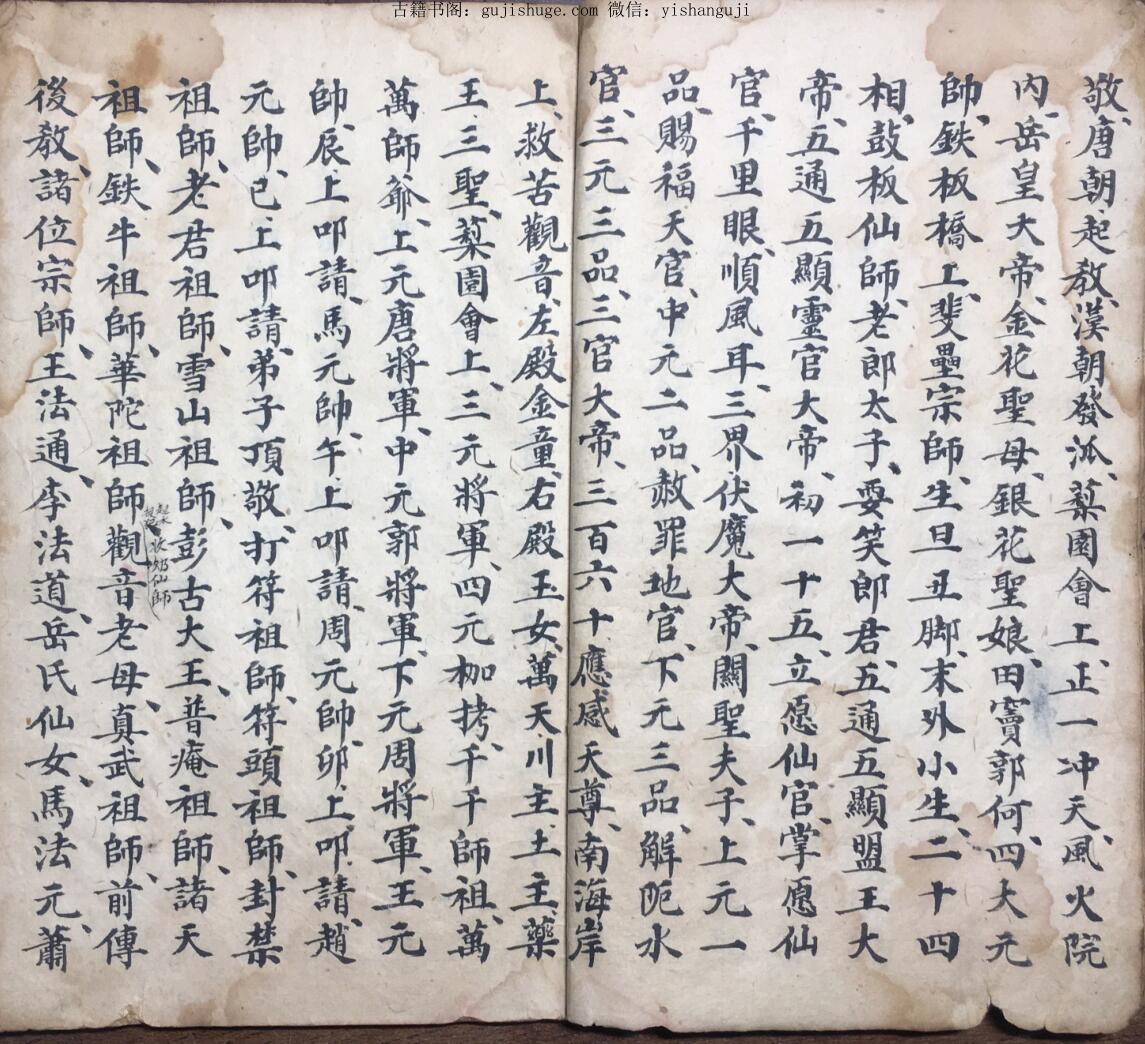 古籍书阁：gujishuge.com 微信：yishanguji
敬、唐朝、起教、漢朝發派、蔾園會上、正一冲天、風火院
内、岳皇大帝、金花聖母、銀花聖娘、田竇郭何、四大元
帥、鉄板橋上、斐壘宗師、生旦丑脚、末外小生、二十四
相、鼓板仙師、老郎太子、耍笑郎君、五通五顯、盟王大
帝、五通五顯靈官大帝、初一十五、立愿仙官、掌愿仙
官、千里眼、順風耳、三界伏魔大帝、關聖夫子、上元一
品、賜福天官、中元二品、赦罪地官、下元三品、解阨水
官、三元三品、三官大帝、三百六十應感天尊、南海岸
上、救苦觀音、左殿金童、右殿玉女、萬天川主土主、藥
王三聖、蔾園會上、三元將軍、四元枷拷、千千師祖、萬
萬師爺、上元唐將軍、中元郭將軍、下元周將軍、王元
帥、辰上叩請、馬元帥、午上叩請、周元帥、卯上叩請、趙
元帥、巳上叩請、弟子頂敬、打符祖師、符頭祖師、封禁
祖師、老君祖師、雪山祖師、彭古大王、普庵祖師、諸天
祖師、鉄牛祖師、華陀祖師、觀音老母、真武祖師、前傳
後教、諸位宗師、王法通、李法道、岳氏仙女、馬法元、蕭